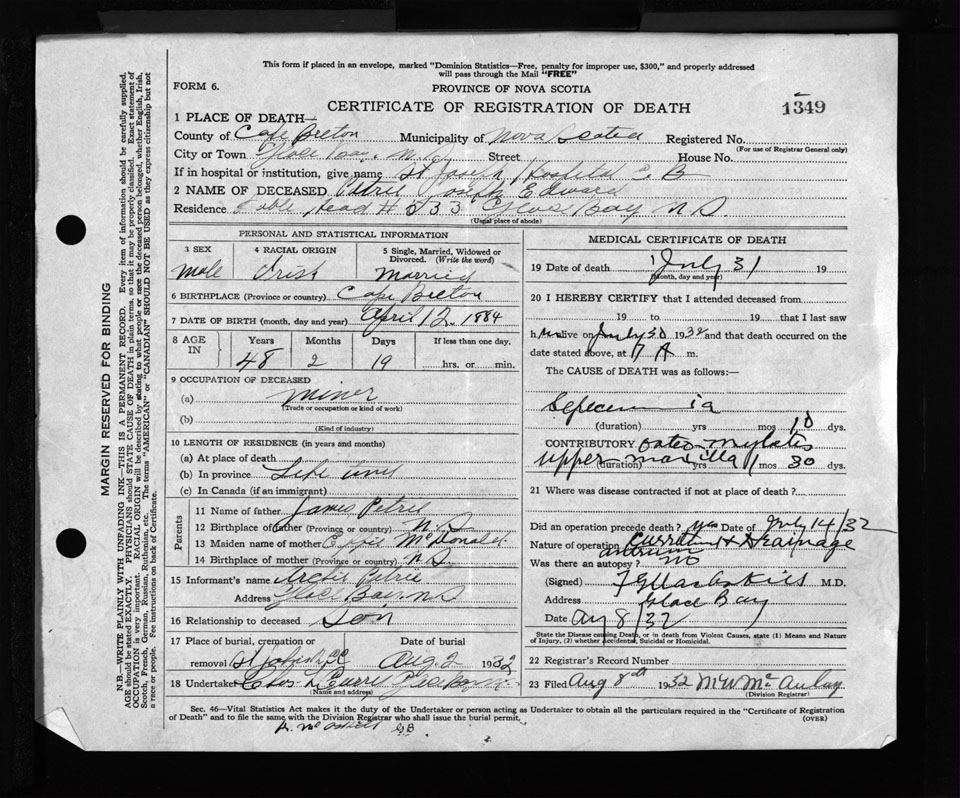 This form if placed in an envelope, marked "Dominion Statistics—Free, penalty for improper use, $300," and properly addressed
will pass through the Mail "FREE"
FORM 6.
PROVINCE OF NOVA SCOTIA
CERTIFICATE OF REGISTRATION OF DEATH
1349
1 PLACE OF DEATH—
County of Cape Breton Municipality of Nova Scotia Registered No.
(For use of Registrar General only)
City or Town Glace Bay. N.S. Street House No.
If in hospital or institution, give name St Joseph Hospital G B
2 NAME OF DECEASED Petrie Joseph Edward
Residence Table Head # 533 Glace Bay N S.
(Usual place of abode)
PERSONAL AND STATISTICAL INFORMATION
3 SEX 4 RACIAL ORIGIN 5 Single, Married, Widowed or Divorced. (Write the word)
Male Irish Married
6 BIRTHPLACE (Province or country) Cape Breton
7 DATE OF BIRTH (month, day and year) April 12. 1884
8 AGE IN Years Months Days If less than one day.
48 2 19 hrs. or min.
9 OCCUPATION OF DECEASED
(a) Miner
(Trade or occupation or kind of work)
(b)
(Kind of industry)
10 LENGTH OF RESIDENCE (in years and months)
(a) At place of death
(b) In province Life time
(c) In Canada (if an immigrant)
Parents
11 Name of father James Petrie
12 Birthplace of father (Province or country) N. S
13 Maiden name of mother Effie McDonald
14 Birthplace of mother (Province or country) N.S.
15 Informant's name Archie Petrie
Address Glace Bay N S
16 Relationship to deceased Son
17 Place of burial, cremation or removal Date of burial
Aug. 2 1932
18 Undertaker
(Name and address)
MEDICAL CERTIFICATE OF DEATH
19 Date of death July 31 19
(Month, day and year)
20 I HEREBY CERTIFY that I attended deceased from
19 to 19 that I last saw
h im alive on July 30 1932 and that death occurred on the
date stated above, at 7 A m.
The CAUSE of DEATH was as follows:—
Sepecemia
(duration) yrs mos 10 dys.
CONTRIBUTORY osteo mylatis
upper maxilla
(duration) yrs 1 mos 30 dys.
21 Where was disease contracted if not at place of death?
Did an operation precede death? yes Date of July 14/32
Nature of operation Drainage
antrum
Was there an autopsy? no
(Signed) M.D.
Address Glace Bay
Date Aug 8/32
State the Disease causing Death, or in death from Violent Causes, state (1) Means and Nature of Injury, (2) whether Accidental, Suicidal or Homicidal.
22 Registrar's Record Number
23 Filed Aug 8th 1932 McAulay
(Division Registrar)
Sec. 46—Vital Statistics Act makes it the duty of the Undertaker or person acting as Undertaker to obtain all the particulars required in the "Certificate of Registration
of Death" and to file the same with the Division Registrar who shall issue the burial permit.
(OVER)
MARGIN RESERVED FOR BINDING
N.B.—WRITE PLAINLY WITH UNFADING INK—THIS IS A PERMANENT RECORD. Every item of information should be carefully supplied.
AGE should be stated EXACTLY. PHYSICIANS should STATE CAUSE OF DEATH in plain terms, so that it may be properly classified. Exact statement of
OCCUPATION is very important. RACIAL ORIGIN will be described by stating to what people or race the deceased person belonged, whether English, Irish,
Scotch, French, German, Russian, Ruthenian, etc. The terms "AMERICAN" or "CANADIAN" SHOULD NOT BE USED as they express citizenship but not
a race or people. See instructions on back of Certificate.